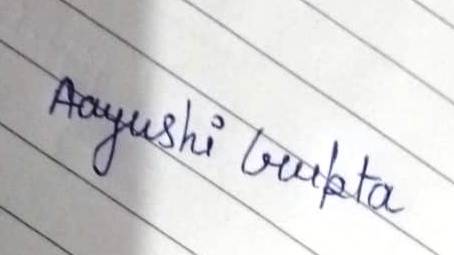 Aayushi Gupta